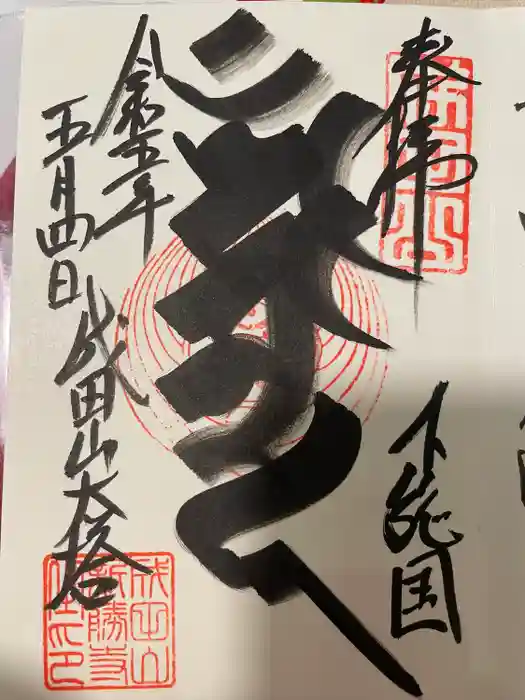 奉拝
下総国
令和五年
五月四日
成田山大塔
成田山
新勝寺